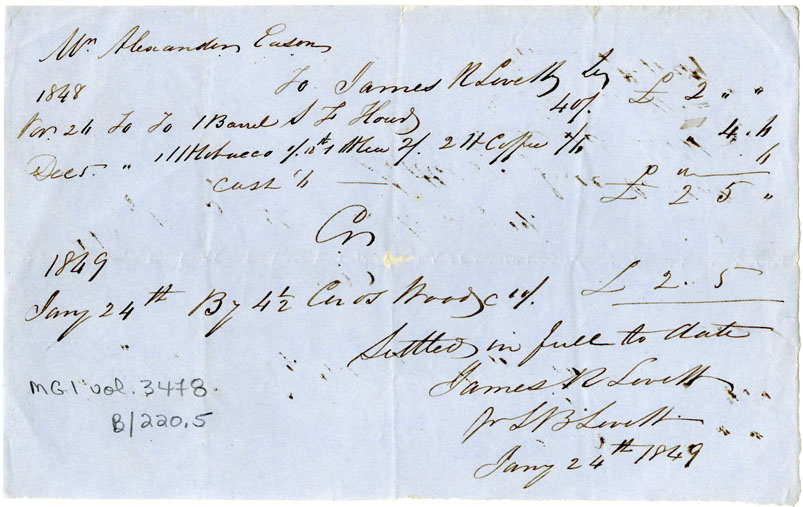 Mr Alexander Eason
To James R Lovett Dr
1848
Nov 24 To To 1 Barrel S F Flour 40/. £ 2 " "
Dec 5 " 1 lb Tobacco 1/. 1 lb Tea 2/. 2 lb Coffee 4. 6
Cash 6 — 6
£ 2 5 "
Cr
1849
Jany 24th By 4½ Cords Wood @ 10/. £ 2. 5
Settled in full to date
James R Lovett
pr L B Lovett
Jany 24th 1849
MG1 vol. 3478.
B/220.5